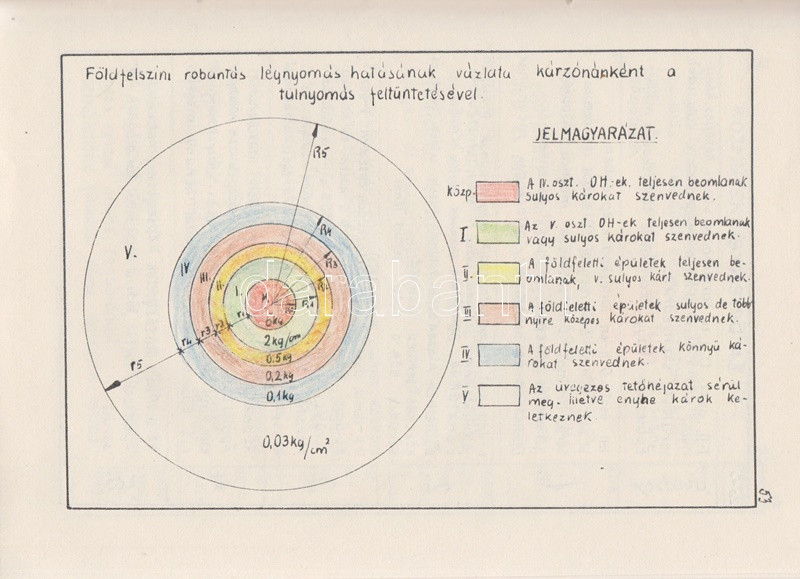 Földfelszini robantás légnyomás hatásának vázlata kárzónánként a
tulnyomás feltüntetésével.
JELMAGYARÁZAT.
Közp. A IV. oszt. OH-ek. teljesen beomlanak
sulyos károkat szenvednek.
I. Az V. oszt OH-ek teljesen beomlanak
vagy sulyos károkat szenvednek.
II. A földfeletti épületek teljesen be-
omlanak, v. sulyos kárt szenvednek.
III A földfeletti épületek sulyos de több
nyire közepes károkat szenvednek.
IV A földfeletti épületek könnyű ká-
rokat szenvednek.
V Az üvegezés tetőhéjazat sérül
meg. illetve enyhe károk ke-
letkeznek
R5
R4
R3
R1
V.
IV.
III.
II.
I.
r1
r2
r3
r4
r5
2 kg/cm
0.5 kg
0,2 kg
0,1 kg
0,03 kg/cm²
53
darabanth